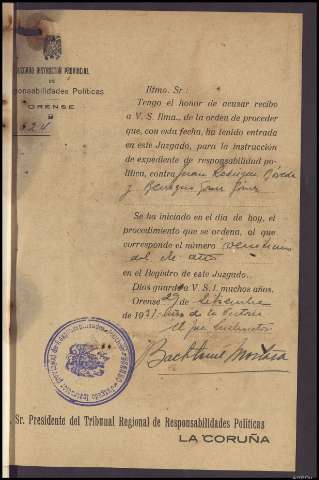 JUZGADO INSTRUCTOR PROVINCIAL
DE
Responsabilidades Políticas
ORENSE
Iltmo. Sr.:
Tengo el honor de acusar recibo
a V. S. Ilma., de la orden de proceder
que, con esta fecha, ha tenido entrada
en este Juzgado, para la instrucción
de expediente de responsabilidad po-
lítica, contra Juan Rodríguez
y
Se ha iniciado en el día de hoy, el
procedimiento que se ordena, al que
corresponde el número
del
en el Registro de este Juzgado.
Dios guarde a V. S. I. muchos años.
Orense 29 de Setiembre
de 193 Año de la Victoria
El Juez Instructor
Sr. Presidente del Tribunal Regional de Responsabilidades Políticas
LA CORUÑA